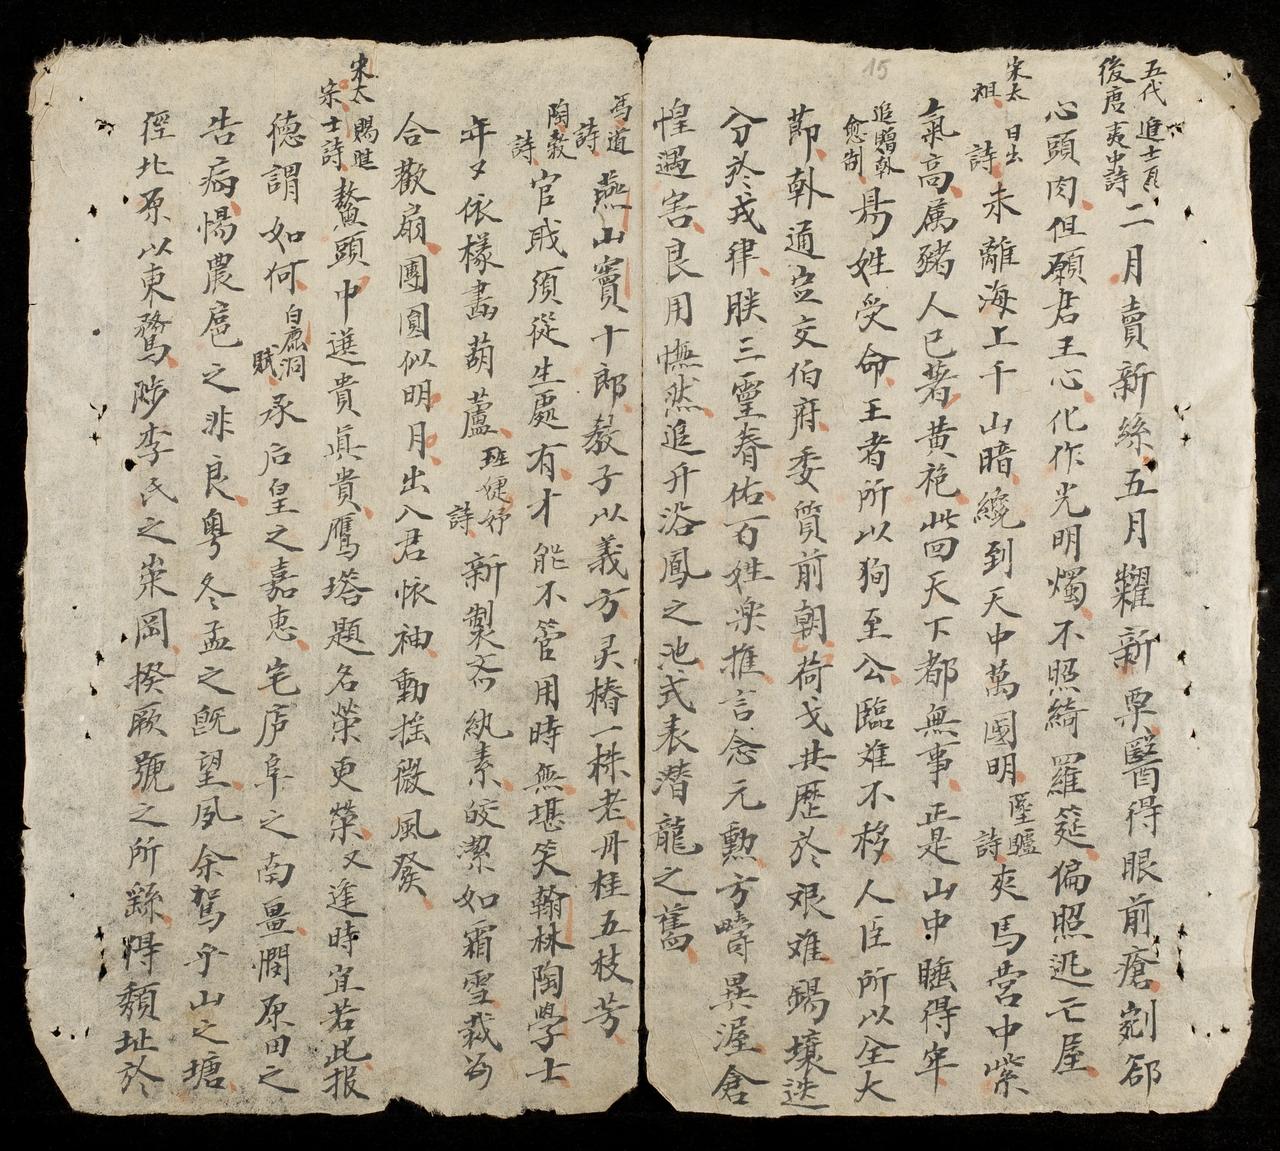 五代後唐進士聶夷中詩二月賣新絲五月糶新粟醫得眼前瘡剜郤
心頭肉但願君王心化作光明燭不照綺羅筵偏照逃亡屋
宋太祖日出詩未離海上千山暗纔到天中萬國明 詩夾馬營中紫
氣高属豬人已著黄袍此回天下都無事正是山中睡得年
追贈韩愈制易姓受命王者所以狥至公臨难不移人臣所以全大
節韩通宣交伯府委質前朝荷戈共歴於艰难錫壤迭
分於戎律朕三霊眷佑百姓楽推言念元勲方疇異渥倉
惶遇害良用憮然追升浴鳳之池式表潜龍之舊
馮道詩燕山竇十郎教子以義方灵椿一株老丹桂五枝芳
陶穀詩官职須從生處有才能不管用時無堪笑翰林陶學士
年又依樣畵葫蘆班婕妤詩新製齐紈素皎潔如霜雪裁为
合歡扇團圓似明月出入君怀袖動揺微風發
宋太宗賜進士詩鰲頭中選貴真貴鴈塔題名荣更荣又進時宜若此报
德謂如何白鹿洞賦承后皇之嘉恵宅庐阜之南畺憫原田之
告病惕農扈之非良粤冬孟之旣望夙余駕乎山之塘
徑北原以東騖陟李氏之崇岡揆厥號之所繇得頽址於